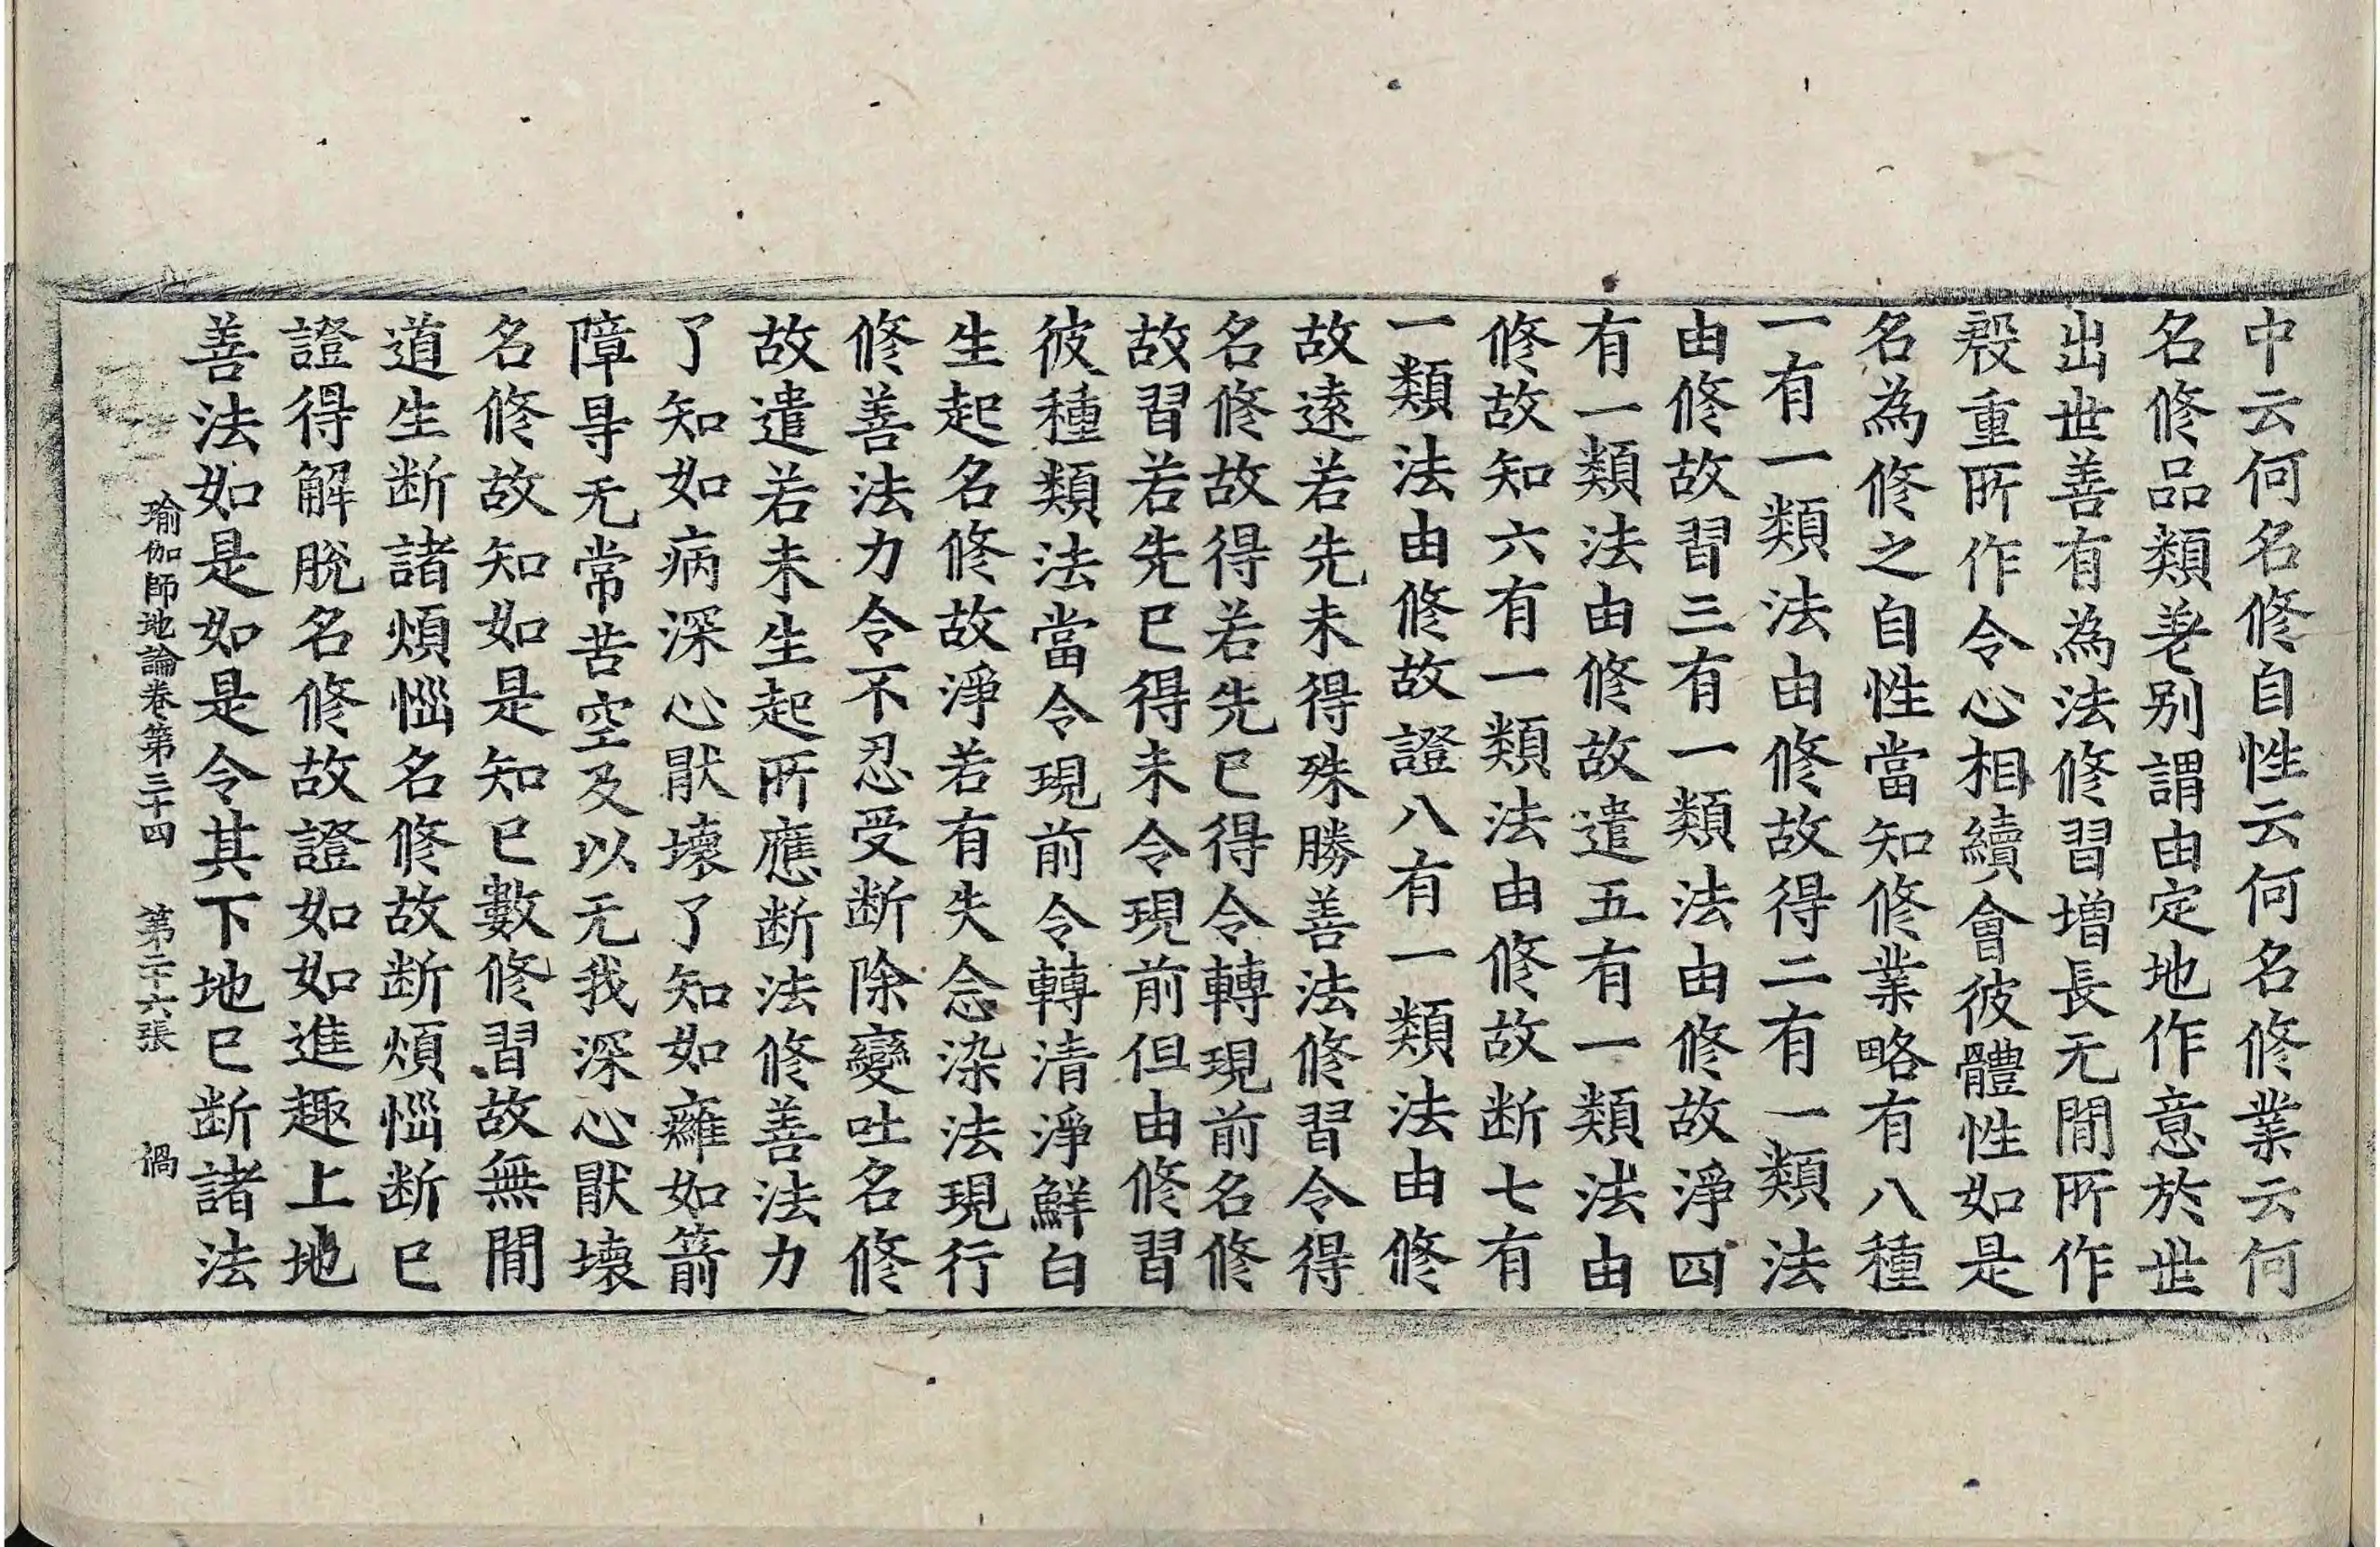 中云何名修自性云何名修業云何
名修品類差別謂由定地作意於世
出世善有為法修習增長无間所作
殷重所作令心相續會彼體性如是
名為修之自性當知修業略有八種
一有一類法由修故得二有一類法
由修故習三有一類法由修故淨四
有一類法由修故遣五有一類法由
修故知六有一類法由修故断七有
一類法由修故證八有一類法由修
故遠若先未得殊勝善法修習令得
名修故得若先已得令轉現前名修
故習若先已得未令現前但由修習
彼種類法當令現前令轉清淨鮮白
生起名修故淨若有失念染法現行
修善法力令不忍受断除變吐名修
故遣若未生起所應断法修善法力
了知如病深心猒壞了知如癰如箭
障㝵无常苦空及以无我深心猒壞
名修故知如是知已數修習故無間
道生断諸煩惱名修故断煩惱断已
證得解脫名修故證如如進趣上地
善法如是如是令其下地已断諸法
瑜伽師地論卷第三十四 第二十六張 禍